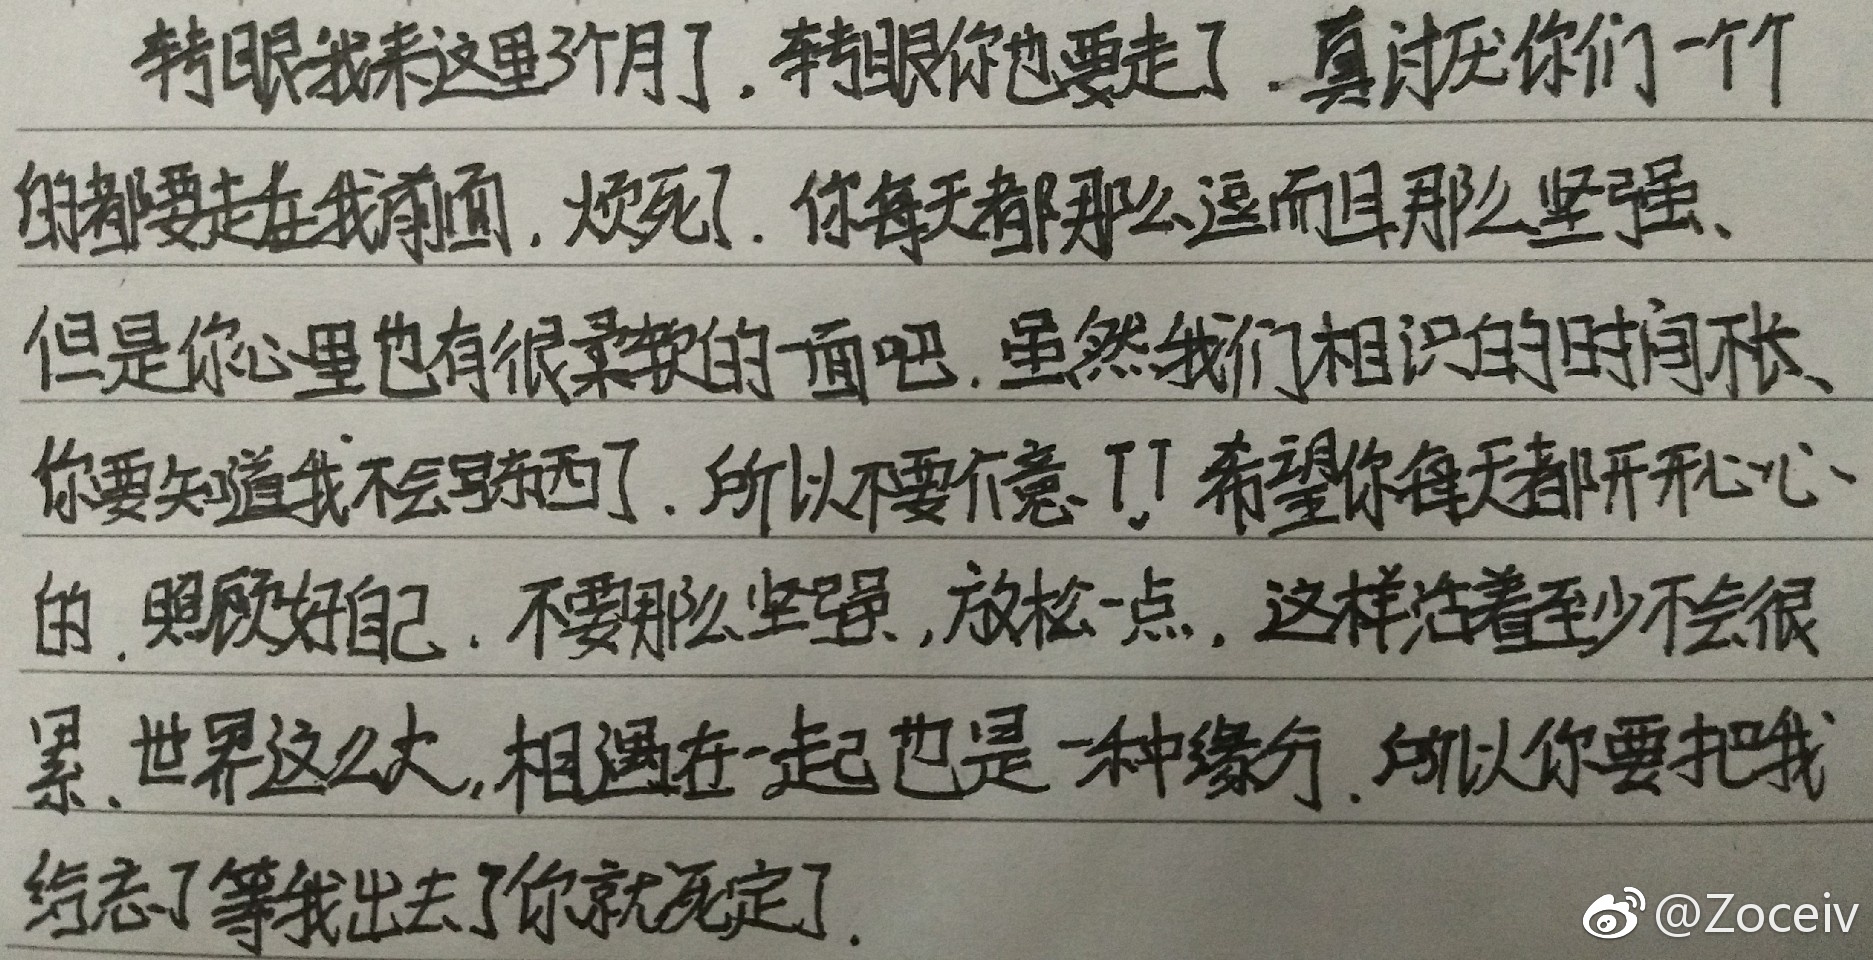 转眼我来这里3个月了.转眼你也要走了.真讨厌你们一个个
的都要走在我前面.烦死了.你每天都那么逗而且那么坚强、
但是你心里也有很柔软的一面吧.虽然我们相识的时间不长、
你要知道我不会写东西了.所以不要介意!!希望你每天都开开心心
的.照顾好自己.不要那么坚强,放松一点,这样活着至少不会很
累.世界这么大,相遇在一起也是一种缘分.所以你要把我
给忘了等我出去了你就死定了.
@Zoceiv